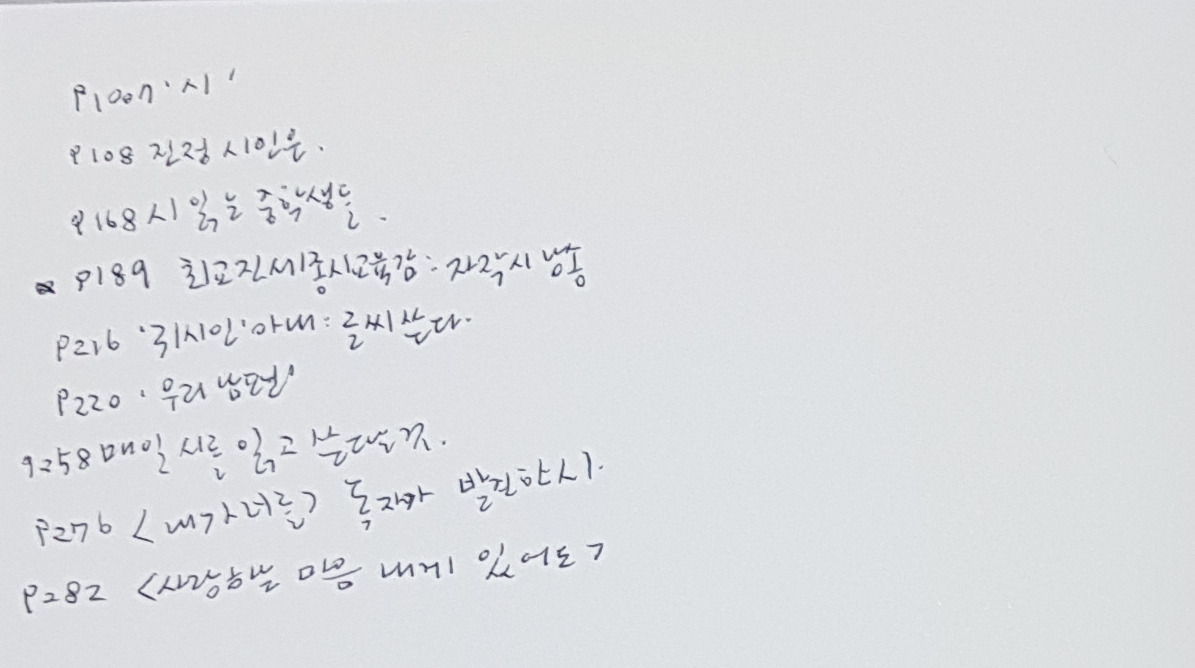 P100 '시'
P108 진정 시인은.
P168 시 읽는 중학생들.
P189 최교진세종시교육감: 자작시 낭송
P216 '귀시인' 아내: 글씨쓴다.
P220 '우리남편'
P258 매일 시를 읽고 쓴다는것.
P276 <내가너를> 독자가 발견한시.
P282 <사랑하는 마음 내게 있어도>